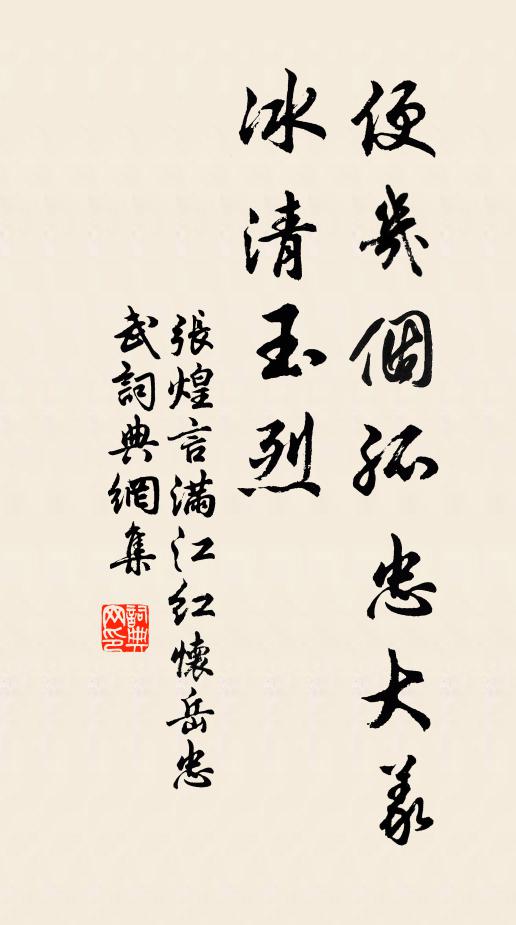 便幾個孤忠大義
冰清玉烈
張煌言滿江紅懷岳忠
武詞典網集
詞典网印